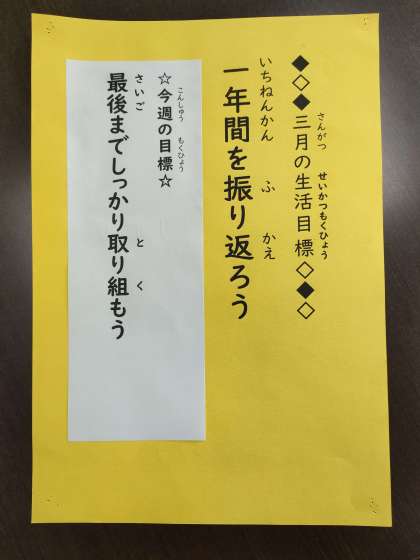 ◆◇◆三月の生活目標◇◆◇
さんがつ せいかつもくひょう
一年間を振り返ろう
いちねんかん ふ かえ
☆今週の目標☆
こんしゅう もくひょう
最後までしっかり取り組もう
さいご と く